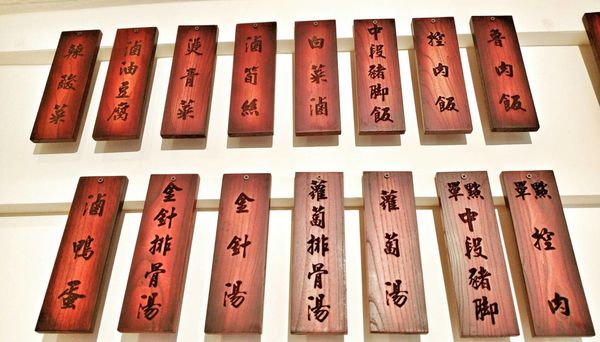 魯肉飯
控肉飯
中段豬脚飯
白菜滷
滷筍絲
燙青菜
滷油豆腐
辣酸菜
單點控肉
單點中段豬脚
蘿蔔湯
蘿蔔排骨湯
金針湯
金針排骨湯
滷鴨蛋